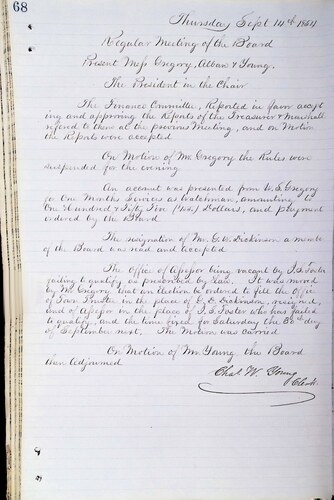 68
Thursday Sept 14th 1854
Regular Meeting of the Board
Present Mess Gregory, Alban & Young.
The President in the Chair
The Finance Committee, Reported in favor accept
ing and approving the Reports of the Treasurer & Marshall
refered to them at the previous Meeting, and on Motion
the Reports were accepted
On Motion of Mr Gregory the Rules were
suspended for the evening
An account was presented from W. S. Gregory
for One Months Services as Watchman, amounting to
One Hundred & Dollars, and payment
ordered by the Board
The resignation of Mr. E. C. Dickinson a membe
of the Board was read and accepted
The Office of Assessor being vacant by J. S. Foster
failing to qualify as prescribed by Law. It was moved
by Mr Gregory that an Election be ordered to fill the Office
of Town Trustee in the place of E. C. Dickinson, resigned,
and of Assessor in the place of J. S. Foster who has failed
to qualify, and the time fixed for Saturday the 30th day
of September next. The Motion was carried.
On Motion of Mr Young the Board
then adjourned
Chas. W. Young
Clerk